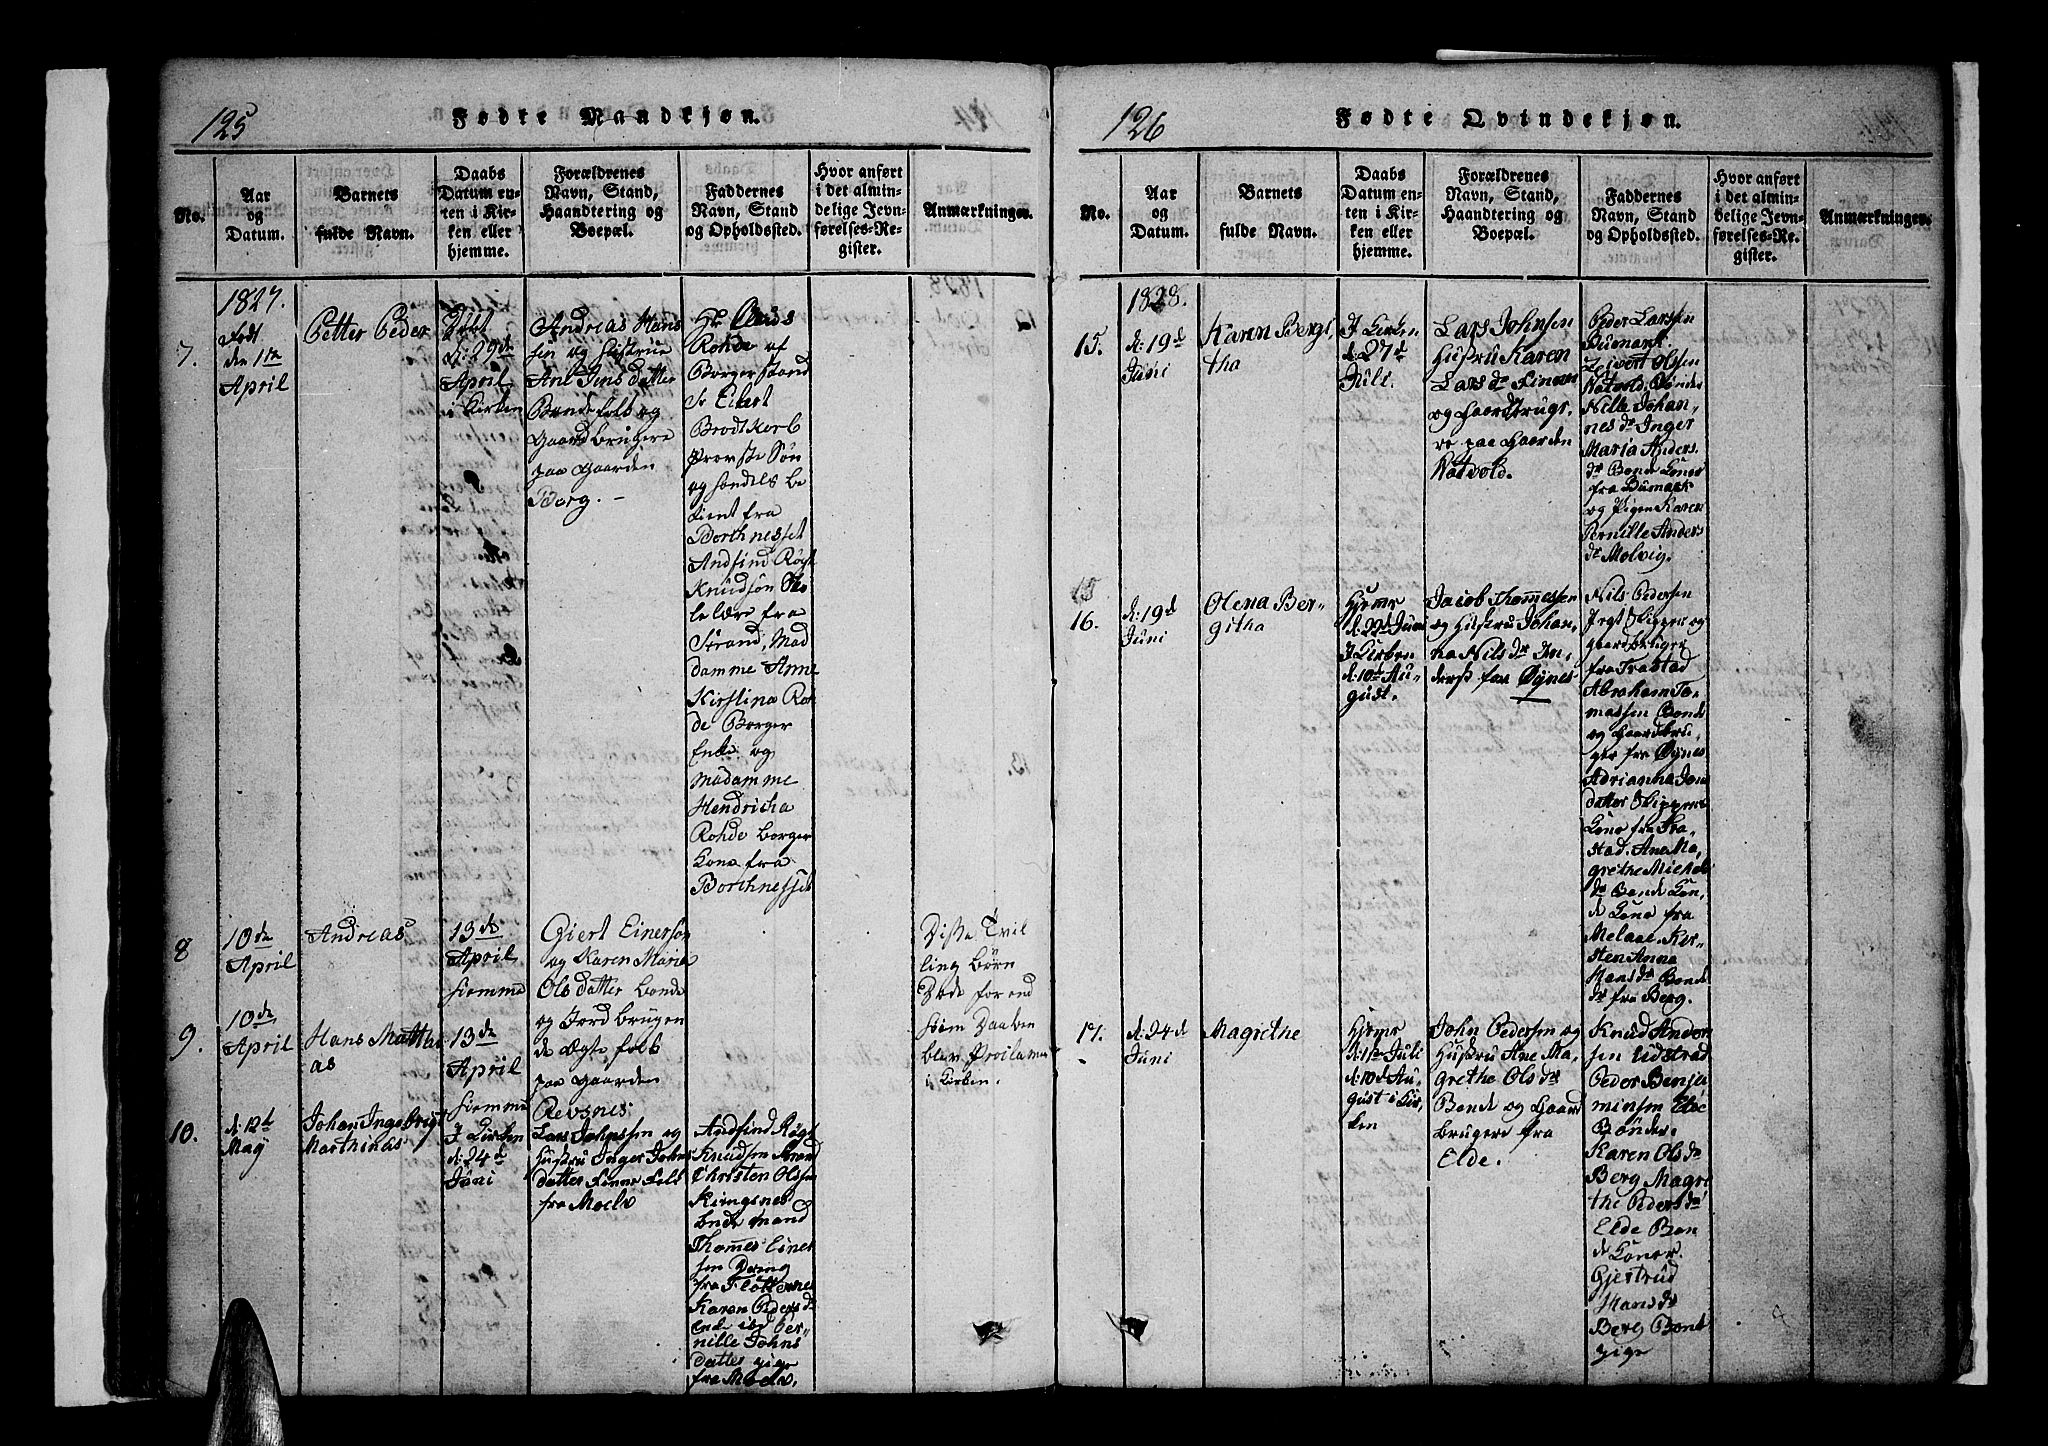 125
Fødte Mandkjøn.
No.
Aar
og
Datum.
Barnets
fulde Navn.
Daabs
Datum en-
ten i Kir-
ken eller
hjemme.
Forældrenes
Navn, Stand,
Haandtering og
Boepæl.
Faddernes
Navn, Stand
og Opholdssted.
Hvor anført
i det almin-
delige Jevn-
førelses-Re-
gister.
Anmærkninger.
1827.
7.
født
den 1ste
April
Petter Peder
Døbt
d: 29de
April
i Kirken
Andreas Hans
sen og Hustrue
Ane Jens datter
Bondefolk og
Gaardbrugere
paa Gaarden
Borg. –
Hr Claus
Rohde af
Borgerstand
Sr Eilert
Brodtkorb
Provste Søn
og Handels be
tient fra
Borchnesset
Andfind Røgt
Knudsøn
fra
Strand, Mad
damme Anne
Kirstina Roh
de Borger
Enke og
Madamme
Hendricha
Rohde borger
Kone fra
Borchnesset
8
10de
April
Andreas
13de
April
hiemme
Giert Einerson
og Karen Maria
Ols datter bonde
og Jord brugen
de Ægte folk
paa Gaarden
Revsnes.
Disse Tvil
ling børn
Døde forend
Daaben
blev
i Kirken.
9.
10de
April
Hans Matthi
as
13de
Apriil
hiemme
10.
d: 12te
May
Johan Ingebrigt
Marthinus
I Kirken
d: 24de
Juni
Lars Johnssen og
Hustru Inger Johns
datter Finne Folk
fra Moelv
Andfind Røgt
Knudsen Strand
Christen Olsen
Kringsnes
bonde mand
Thomes Einer
sen Dreng
fra
Karen Peders dr
Per-
nille Johns
datter pige
fra Moelv.
126
Fødte Qvindekjøn.
No.
Aar
og
Datum.
Barnets
fulde Navn.
Daabs
Datum en-
ten i Kir-
ken eller
hjemme.
Forældrenes
Navn, Stand,
Haandtering og
Boepæl.
Faddernes
Navn, Stand
og Opholdssted.
Hvor anført
i det almin-
delige Jevn-
førelses-Re-
gister.
Anmærkninger.
1828.
15.
d: 19d
Juni
Karen Bergi
tha
I Kirken
d: 27d
Juli.
Lars Johnsen
Hustru Karen
Lars dr Finner
og Gaardbruge-
re paa Gaarden
Natvold.
Peder Larsen
Bumark.
Zeivert Olsen
Natvold. Bønder
Nille Johan-
nes dr Inger
Maria Anders
dr Bonde Koner
fra Bumark
og Pigen Karen
Pernille Anders
dr Molvig.
15
16.
d: 19d
Juni
Olena Ber-
githa
Hjeme
d: 22d Juni
I Kirken
d: 10d Au-
gust.
Jacob Thomesen
og Hustru Johan-
na Nils dr In-
derst paa Øynes
Nils Pedersen
Jægt Skipper og
gaardbruger
fra Trastad
Abraham To-
massen Bonde
og Gaardbru-
ger fra Øynes
Adrianna Jens
datter Skippers
Kone fra Tra-
stad. Ane Ma-
grethe Michels
dr Bonde Kon-
de Kone fra
Melaae. Kir-
sten Anna
Hans dr Bonde
dr fra Berg.
17.
d: 24d
Juni
Magrethe
Hjeme
d: 1ste Juli
d: 10d Au-
gust i Kir-
ken
John Pedersen og
Hustru Ane Ma-
grethe Ols dr
Bonde og Gaard
brugere fra
Elde.
Knud Ander
sen Udstrad
Peder Benja
minsen Elde
Bønder.
Karen Ols dr
Berg Magre
the Peders dr
Elde Bon
de Koner.
Gjertrud
Hans dr
Berg Bonde
pige